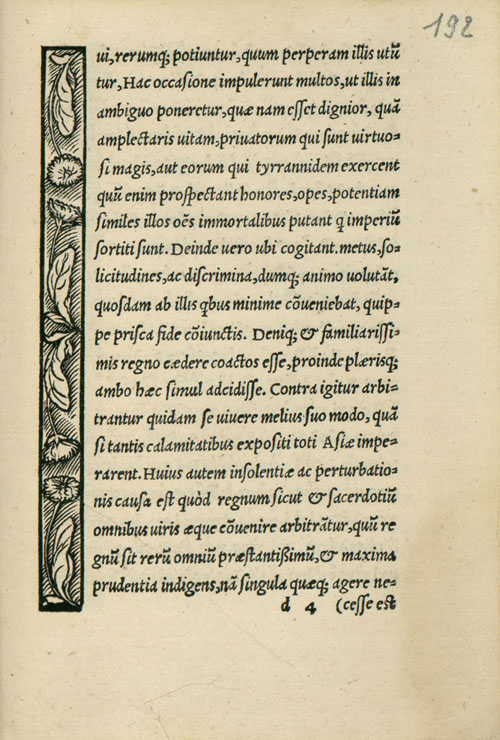 192
ui, rerumq; potiuntur, quum perperam illis utũ
tur, Hac occasione impulerunt multos, ut illis in
ambiguo poneretur, quæ nam esset dignior, quã
amplectaris uitam, priuatorum qui sunt uirtuo-
si magis, aut eorum qui tyrrannidem exercent
quũ enim prospectant honores, opes, potentiam
similes illos oẽs immortalibus putant q imperiũ
sortiti sunt. Deinde uero ubi cogitant. metus, so-
licitudines, ac discrimina, dumq; animo uolutãt,
quosdam ab illis qbus minime cõueniebat, quip-
pe prisca fide cõiunctis. Deniq; & familiarissi-
mis regno cædere coactos esse, proinde plærisq;
ambo hæc simul adcidisse. Contra igitur arbi-
trantur quidam se uiuere melius suo modo, quã
si tantis calamitatibus expositi toti Asiæ impe-
rarent. Huius autem insolentiæ ac perturbatio-
nis causa est quòd regnum sicut & sacerdotiũ
omnibus uiris æque cõuenire arbitrãtur, quũ re
gnũ sit rerũ omniũ præstantißimũ, & maxima
prudentia indigens, nã singula quæq; agere ne-
d 4 (cesse est